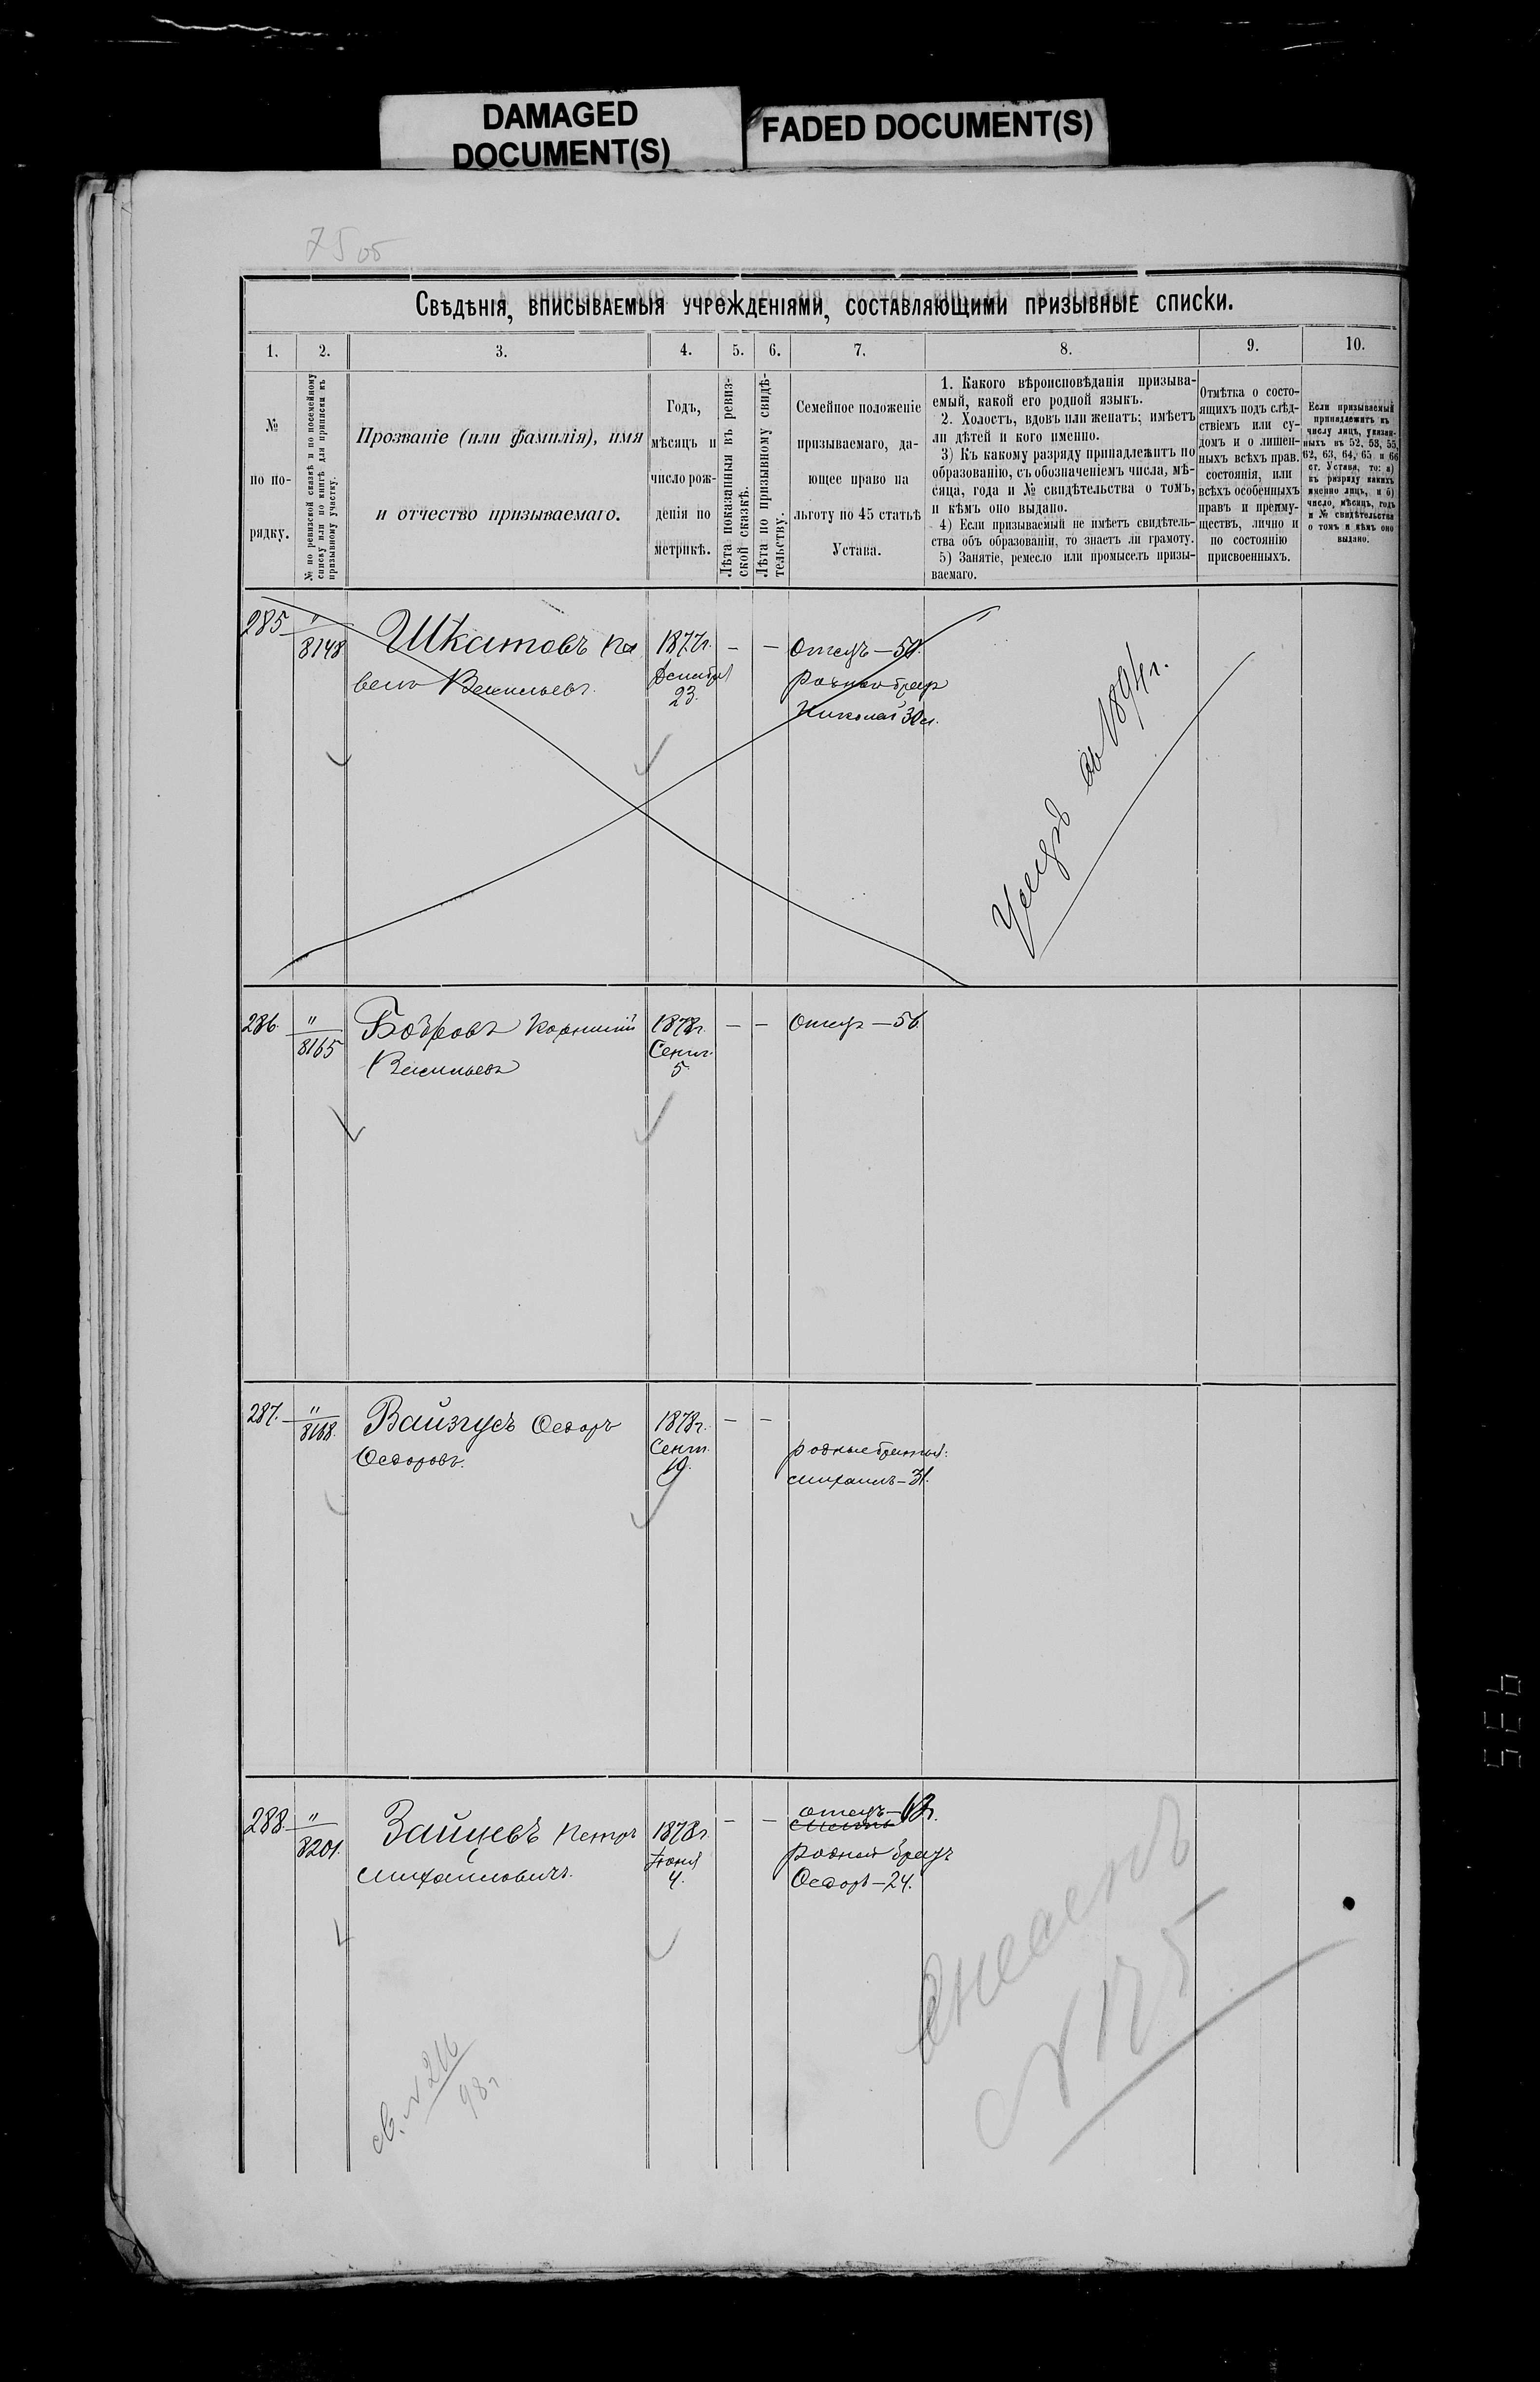 DAMAGED
DOCUMENT(S)
FADED DOCUMENT(S)
Свѣдѣнія, вписываемыя учрежденіями, составляющими призывные списки.
1. 2. 3. 4. 5. 6. 7. 8. 9. 10.
№
по по-
рядку.
№ по ревизской сказкѣ и по посемейному
списку или по книгѣ для приписки къ
призывному участку.
Прозваніе (или фамилія), имя
и отчество призываемаго.
Годъ,
мѣсяцъ и
число рож-
денія по
метрикѣ.
Лѣта показанныя въ ревиз-
ской сказкѣ.
Лѣта по призывному свидѣ-
тельству.
Семейное положеніе
призываемаго, да-
ющее право на
льготу по 45 статьѣ
Устава.
1. Какого вѣроисповѣданія призыва-
емый, какой его родной языкъ.
2. Холостъ, вдовъ или женатъ; имѣетъ
ли дѣтей и кого именно.
3) Къ какому разряду принадлежитъ по
образованію, съ обозначеніемъ числа, мѣ-
сяца, года и № свидѣтельства о томъ,
и кѣмъ оно выдано.
4) Если призываемый не имѣетъ свидѣтель-
ства объ образованіи, то знаетъ ли грамоту.
5) Занятіе, ремесло или промыселъ призы-
ваемаго.
Отмѣтка о состо-
ящихъ подъ слѣд-
ствіемъ или су-
домъ и о лишен-
ныхъ всѣхъ прав.
состоянія, или
всѣхъ особенныхъ
правъ и преиму-
ществъ, лично и
по состоянію
присвоенныхъ.
Если призываемый
принадлежитъ къ
числу лицъ, указан-
ныхъ въ 52, 53, 55,
62, 63, 64, 65 и 66
ст. Устава, то: а)
къ разряду какихъ
именно лицъ, и б)
число, мѣсяцъ, годъ
и № свидѣтельства
о томъ и кѣмъ оно
выдано.
285 " 8148
Шкатовъ Па
велъ Васильевъ.
1877г.
Декабря
23.
— —
Отецъ—
Родной братъ
Николай 30л.
1894г.
286. " 8165
Бобровъ Корнилій
Васильевъ
1878г.
Сент.
5.
— —
Отецъ—56
287. " 8168.
Вайзгусъ Ѳедоръ
Ѳедоровъ.
1878г.
Сент.
19.
— —
родные братья:
Михаилъ—31.
288. " 8201.
Зайцевъ Петръ
Михайловичъ.
1878г.
Іюня
4.
— —
отецъ—
Родной братъ
Ѳедоръ—24.
св. № 216
98г
№ 175
935